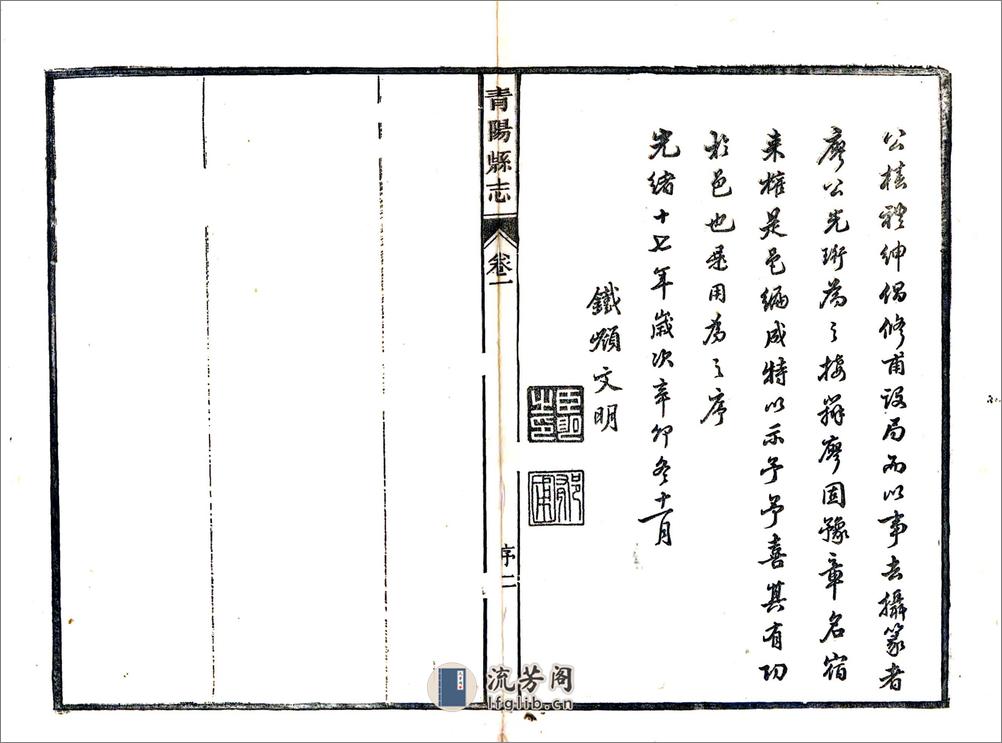 公桂雅紳偶修甫設局而以事去攝篆者
廖公光珩為之接辦廖固豫章名宿
来權是邑編成特以示予予喜其有功
於邑也是用為之序
光緒十七年歲次辛卯冬十一月
鐵嶺文明
青陽縣志
卷一
序二
流芳阁
lfglib.cn